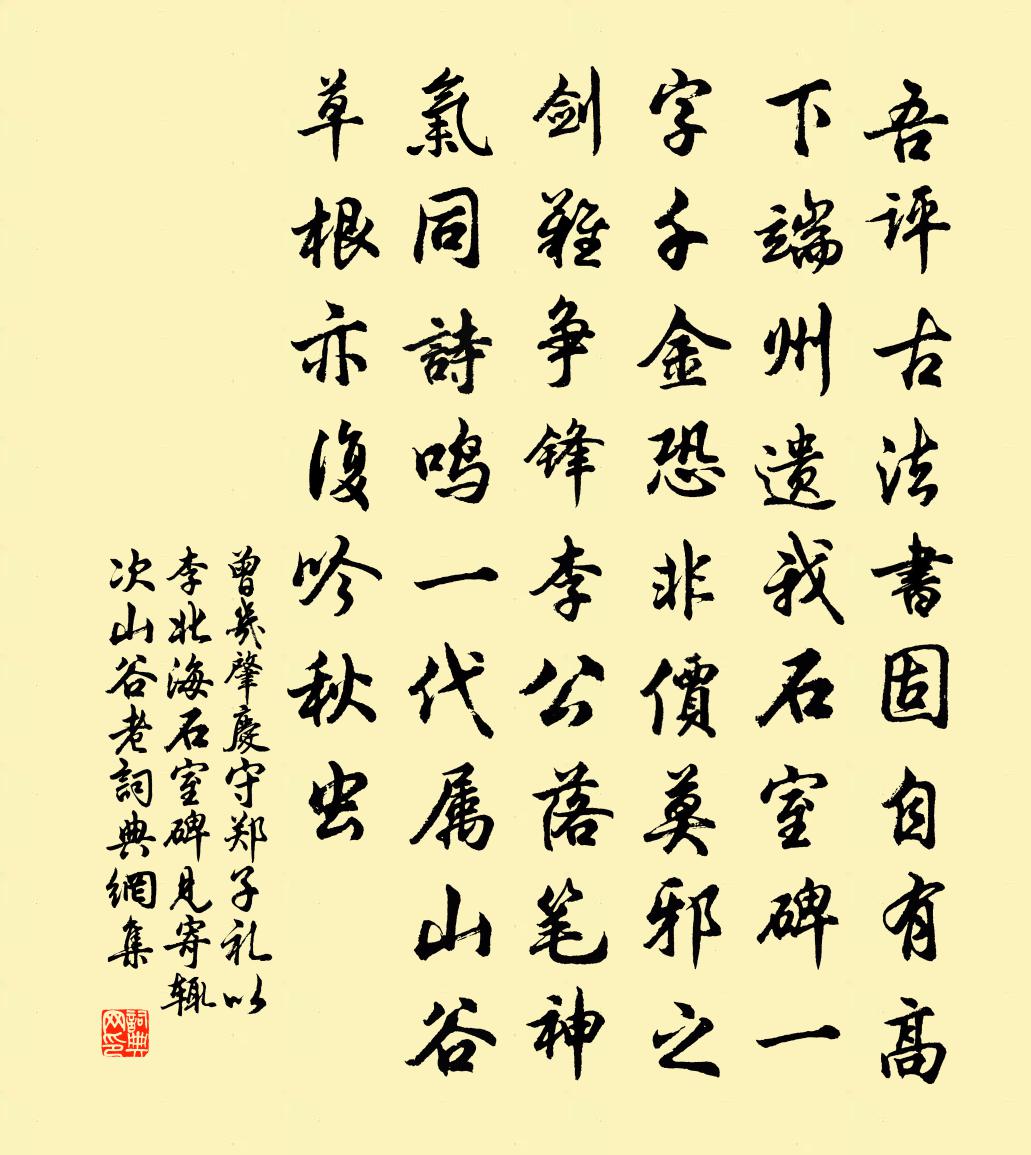 吾评古法書固自有高
下端州遗我石室碑一
字千金恐非價莫邪之
劍難争锋李公落笔神
氣同詩鸣一代属山谷
草根亦復吟秋虫
曾幾肇慶守郑子礼以
李北海石室碑見寄輒
次山谷老詞典網集
詞典网印